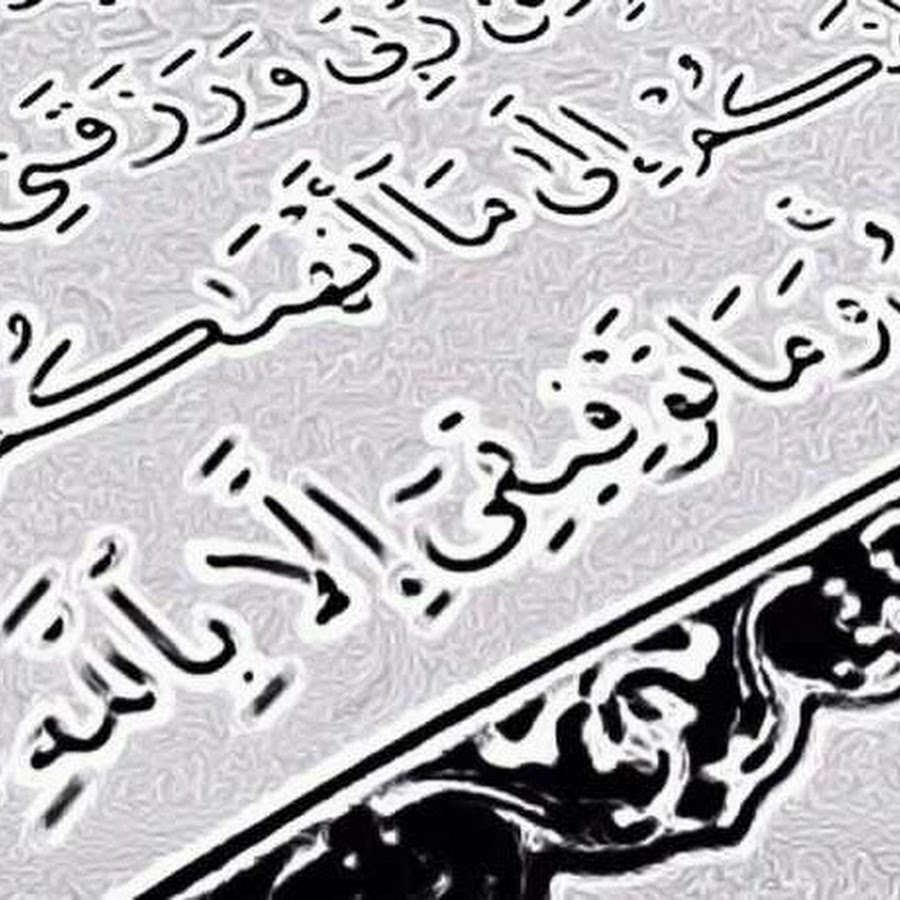 رَبِّى وَرَزَقَنِى
كُمْ إِلَىٰ مَا أَنْهَىٰكُمْ
وَمَا تَوْفِيقِىٓ إِلَّا بِٱللَّهِ